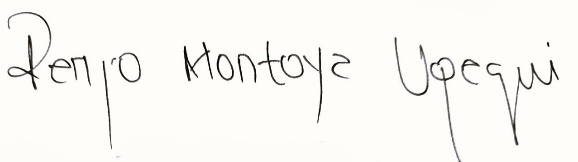 Renzo Montoya Upegui